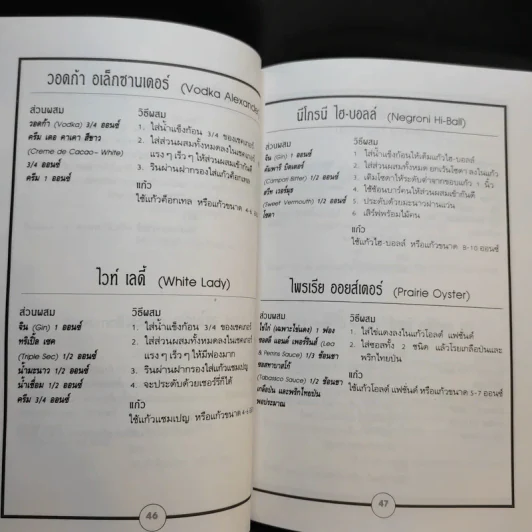 วอดก้า อเล็กซานเดอร์ (Vodka Alexander)
ส่วนผสม
วอดก้า (Vodka) 3/4 ออนซ์
ครีม เดอ คาเคา สีขาว
(Crème de Cacao- White)
3/4 ออนซ์
ครีม 1 ออนซ์
วิธีผสม
1. ใส่น้ำแข็งก้อน 3/4 ของเชคเกอร์
2. ใส่ส่วนผสมทั้งหมดลงในเชคเกอร์
แรง ๆ เร็ว ๆ ให้ส่วนผสมเข้ากัน
3. รินผ่านฝากรองใส่แก้วค็อกเทล
แก้ว
ใช้แก้วค็อกเทล หรือแก้วขนาด 4-6
ไวท์ เลดี้ (White Lady)
ส่วนผสม
จิน (Gin) 1 ออนซ์
ทริเปิ้ล เซค
(Triple Sec) 1/2 ออนซ์
น้ำมะนาว 1/2 ออนซ์
น้ำเชื่อม 1/2 ออนซ์
ครีม 3/4 ออนซ์
วิธีผสม
1. ใส่น้ำแข็งก้อน 3/4 ของเชคเกอร์
2. ใส่ส่วนผสมทั้งหมดลงในเชคเกอร์
แรง ๆ เร็ว ๆ ให้มีฟองมาก
3. รินผ่านฝากรองใส่แก้วแชมเปญ
4. จะประดับด้วยเชอร์รี่ก็ได้
แก้ว
ใช้แก้วแชมเปญ หรือแก้วขนาด 4-6
46
นีโกรนี ไฮ-บอลล์ (Negroni Hi-Ball)
ส่วนผสม
จิน (Gin) 1 ออนซ์
คัมพารี บิตเตอร์
(Campari Bitter) 1/2 ออนซ์
สวีท เวอร์มุธ
(Sweet Vermouth) 1/2 ออนซ์
โซดา
วิธีผสม
1. ใส่น้ำแข็งก้อนให้เต็มแก้วไฮ-บอลล์
2. ใส่ส่วนผสมทั้งหมด ยกเว้นโซดา ลงในแก้ว
3. เติมโซดาให้ระดับต่ำจากขอบแก้ว 1 นิ้ว
4. ใช้ช้อนบาร์คนให้ส่วนผสมเข้ากันดี
5. ประดับด้วยมะนาวผ่านแว่น
6. เสิร์ฟพร้อมไม้คน
แก้ว
ใช้แก้วไฮ-บอลล์ หรือแก้วขนาด 8-10 ออนซ์
ไพรเรีย ออยส์เตอร์ (Prairie Oyster)
ส่วนผสม
ไข่ไก่ (เฉพาะไข่แดง) 1 ฟอง
ซอสลี แอนด์ เพอร์รินส์ (Lea
& Perrins Sauce) 1/3 ช้อนชา
ซอสทาบาสโก้
(Tabasco Sauce) 1/2 ช้อนชา
เกลือป่น และพริกไทยป่น
พอประมาณ
วิธีผสม
1. ใส่ไข่แดงลงในแก้วโอลด์ แฟชั่นด์
2. ใส่ซอสทั้ง 2 ชนิด แล้วโรยเกลือป่นและ
พริกไทยป่น
แก้ว
ใช้แก้วโอลด์ แฟชั่นด์ หรือแก้วขนาด 5-7 ออนซ์
47